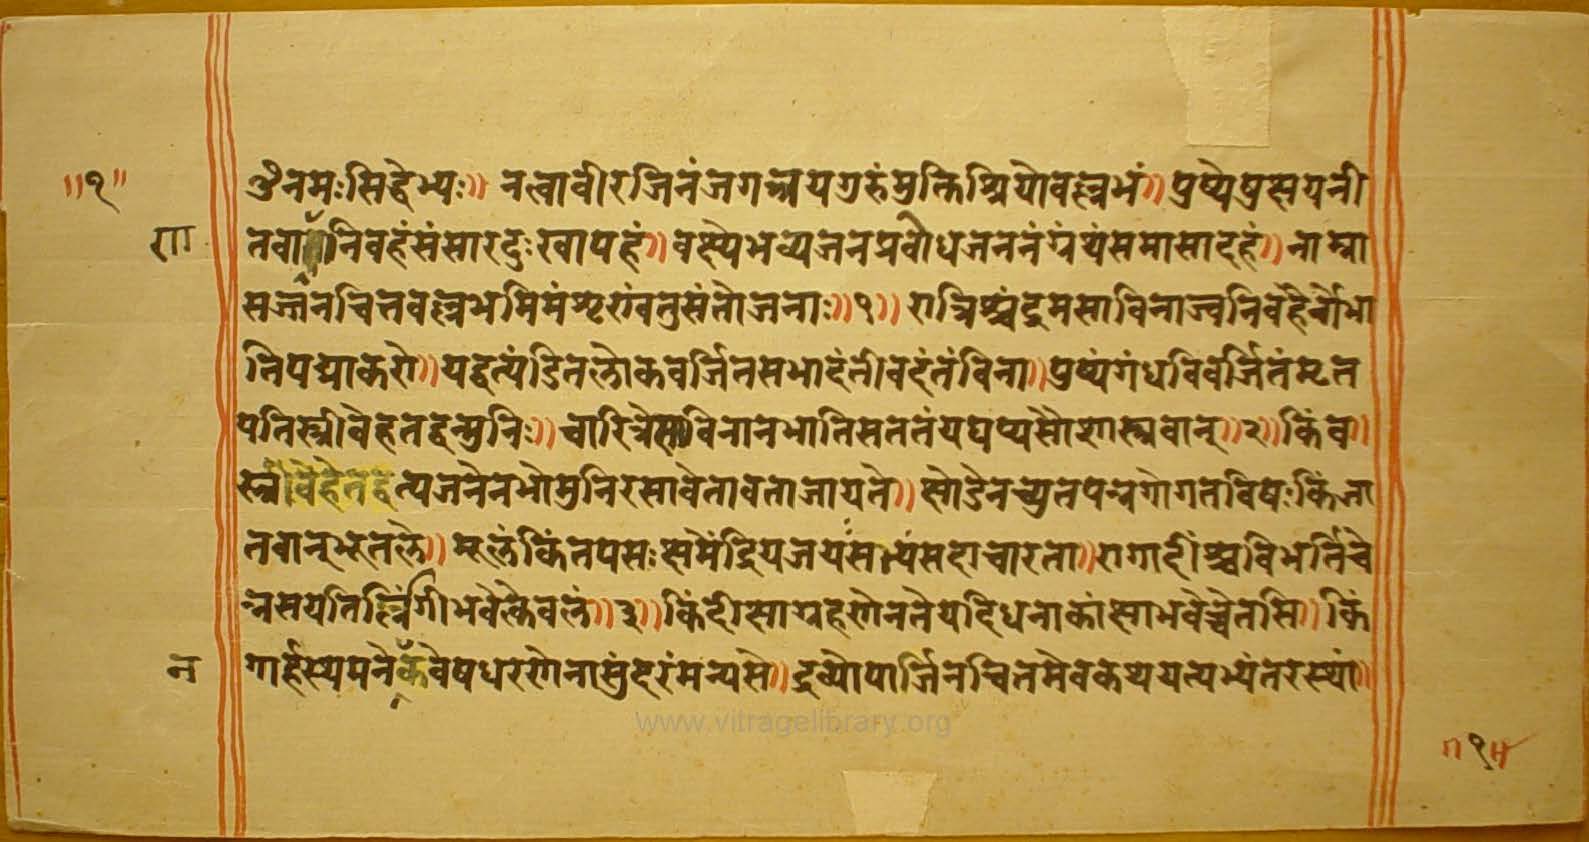 ॥१॥
ॐनमःसिद्धेभ्यः॥ नत्वावीरजिनंजगत्त्रयगुरुंमुक्तिश्रियोवल्लभं॥ पुष्पेषुक्षयनी
णा
तबाणनिवहंसंसारदुःखापहं॥ वक्ष्येभव्यजनप्रबोधजननंग्रंथंसमासादहं॥ नाम्ना
सज्जनचित्तवल्लभमिमंशृण्वंतुसंतोजनाः॥१॥ रात्रिश्चंद्रमसाविनाब्जनिवहैर्नोभा
तिपद्माकरो॥यद्वत्पंडितलोकवर्जितसभादंतीवदंतंविना॥पुष्पंगंधविवर्जितंमृत
पतिस्त्रीवेहतद्वन्मुनिः॥चारित्रेणविनानभातिसततंयद्यप्यसौशास्त्रवान्॥२॥किंव॥
स्त्रीवेहेतद्वत्यजनेनभोमुनिरसावेतावताजायते॥क्ष्वेडेनच्युतपन्नगोगतविषःकिंजा
तवान्भूतले॥मूलंकिंतपसःक्षमेंद्रियजयंसत्यंसदाचारता॥रागादींश्चबिभर्तिचे
न्नसयतिर्लिंगीभवेत्केवलं॥३॥किंदीक्षाग्रहणेनतेयदिधनाकांक्षाभवेच्चेतसि॥किं
न
गार्हस्थ्यमनेकवेषधरणेनासुंदरंमन्यसे॥द्रव्योपार्जनचितमेवकथयत्यभ्यंतरस्थां॥
www.vitragelibrary.org
॥१॥